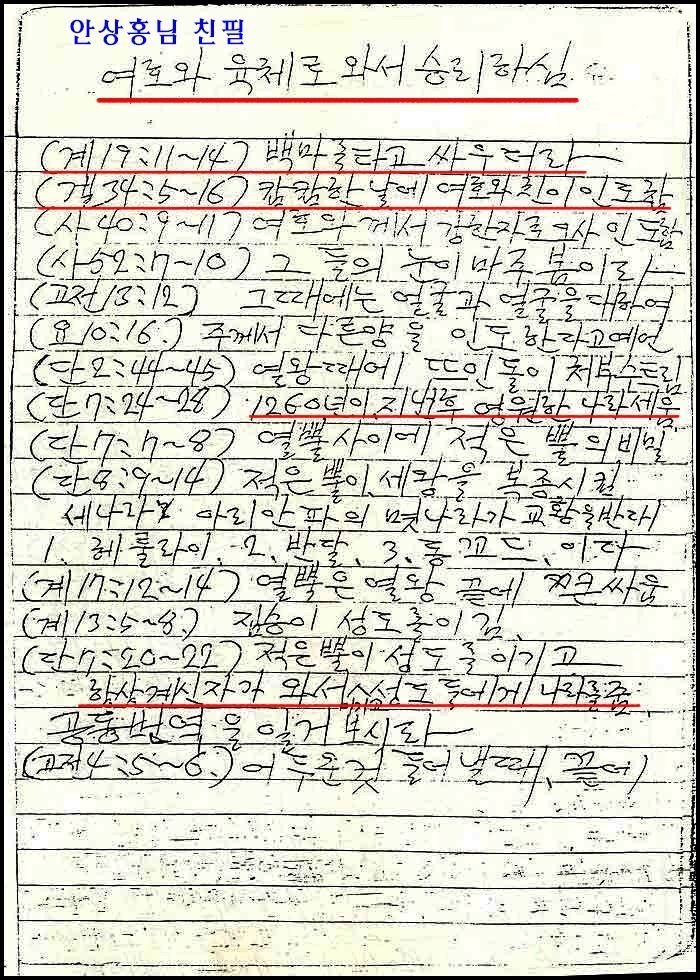 안상홍님 친필
여호와 육체로 와서 승리하심
(계19:11~14) 백마를타고 싸우더라
(겔34:5~16) 캄캄한날에 여호와친이 인도함
(사40:9~17 여호와께서 강한자로 오사 인도함
(사52:7~10) 그들의 눈이 마주 봄이라
(고전13:12) 그때에는 얼굴과 얼굴을대하여
(요10:16.) 주께서 다른양을 인도한다고예언
(단2:44~45) 열왕때에 뜨인돌이 쳐부순트림
(단7:24~28) 1260년이 지난후 영원한 나라세움
(단7:7~8) 열뿔사이에 적은 뿔의비밀
(단8:9~14) 적은뿔이 세왕을 복종시킬
세나라 아리안파의 몇나라가 교황을반대
1. 헤룰라이. 2. 반달. 3. 동꼬드. 이다
(계17:12~14) 열뿔은열왕 끝에 큰싸움
(계13:5~8.) 짐승이 성도를이김
(단7:20~22) 적은뿔이성도를이기고
항상계신자가 와서 성도들에게 나라를줌
공동번역을 일거보시라
(고전4:5~6.) 어두운것 들어낼때, 끝에